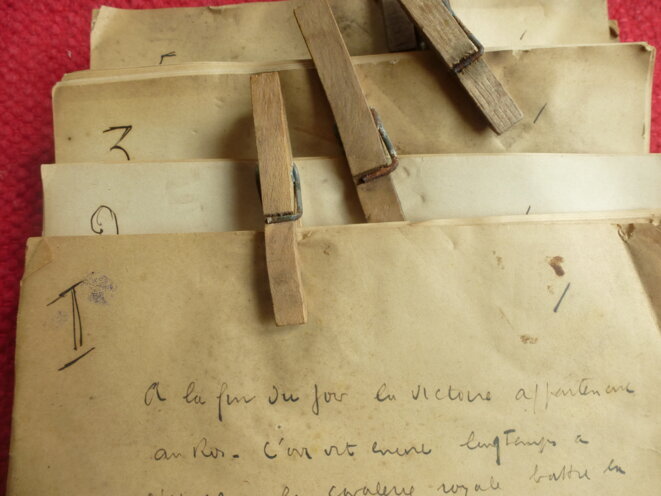 5
3
2
II
A la fin du jour la victoire appartenait
au Roi. L'on vit encore longtemps a
la cavalerie royale battre en